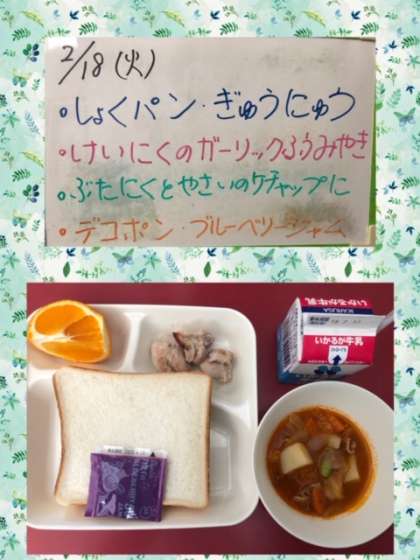 2/18(火)
・しょくパン・ぎゅうにゅう
・けいにくのガーリックふうみやき
・ぶたにくとやさいのケチャップに
・デコポン・ブルーベリージャム
いかるが牛乳
IKARUGA
いかるが牛乳